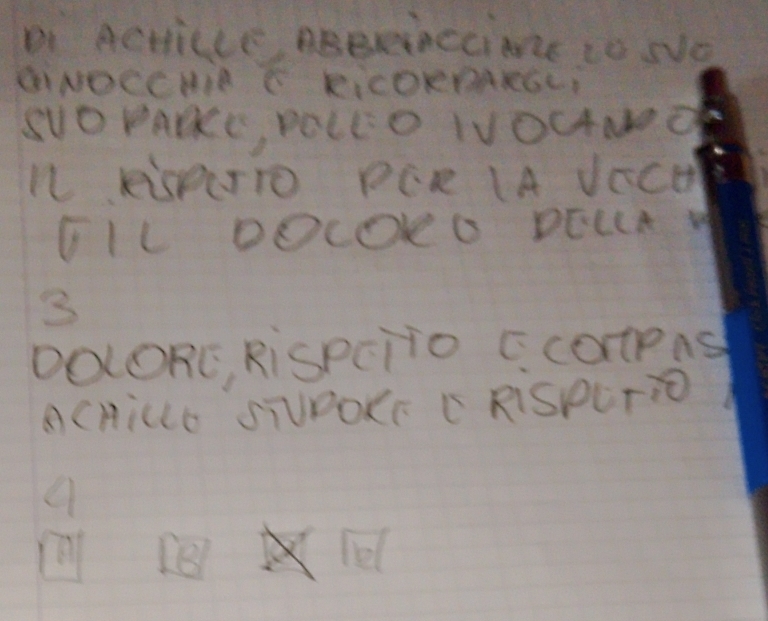 DI ACHILLE, ABBRIACCIARE LO SUO
GINOCCHIA E RICORDARGLI
SUO PADRE, POLLEO IVOCANDO
IL RISPETTO PER LA VECCH
E IL DOLORO DELLA
3
DOLORE, RISPETTO E COMPAS
ACHILLE STUPORE E RISPETTO
4
A B C D